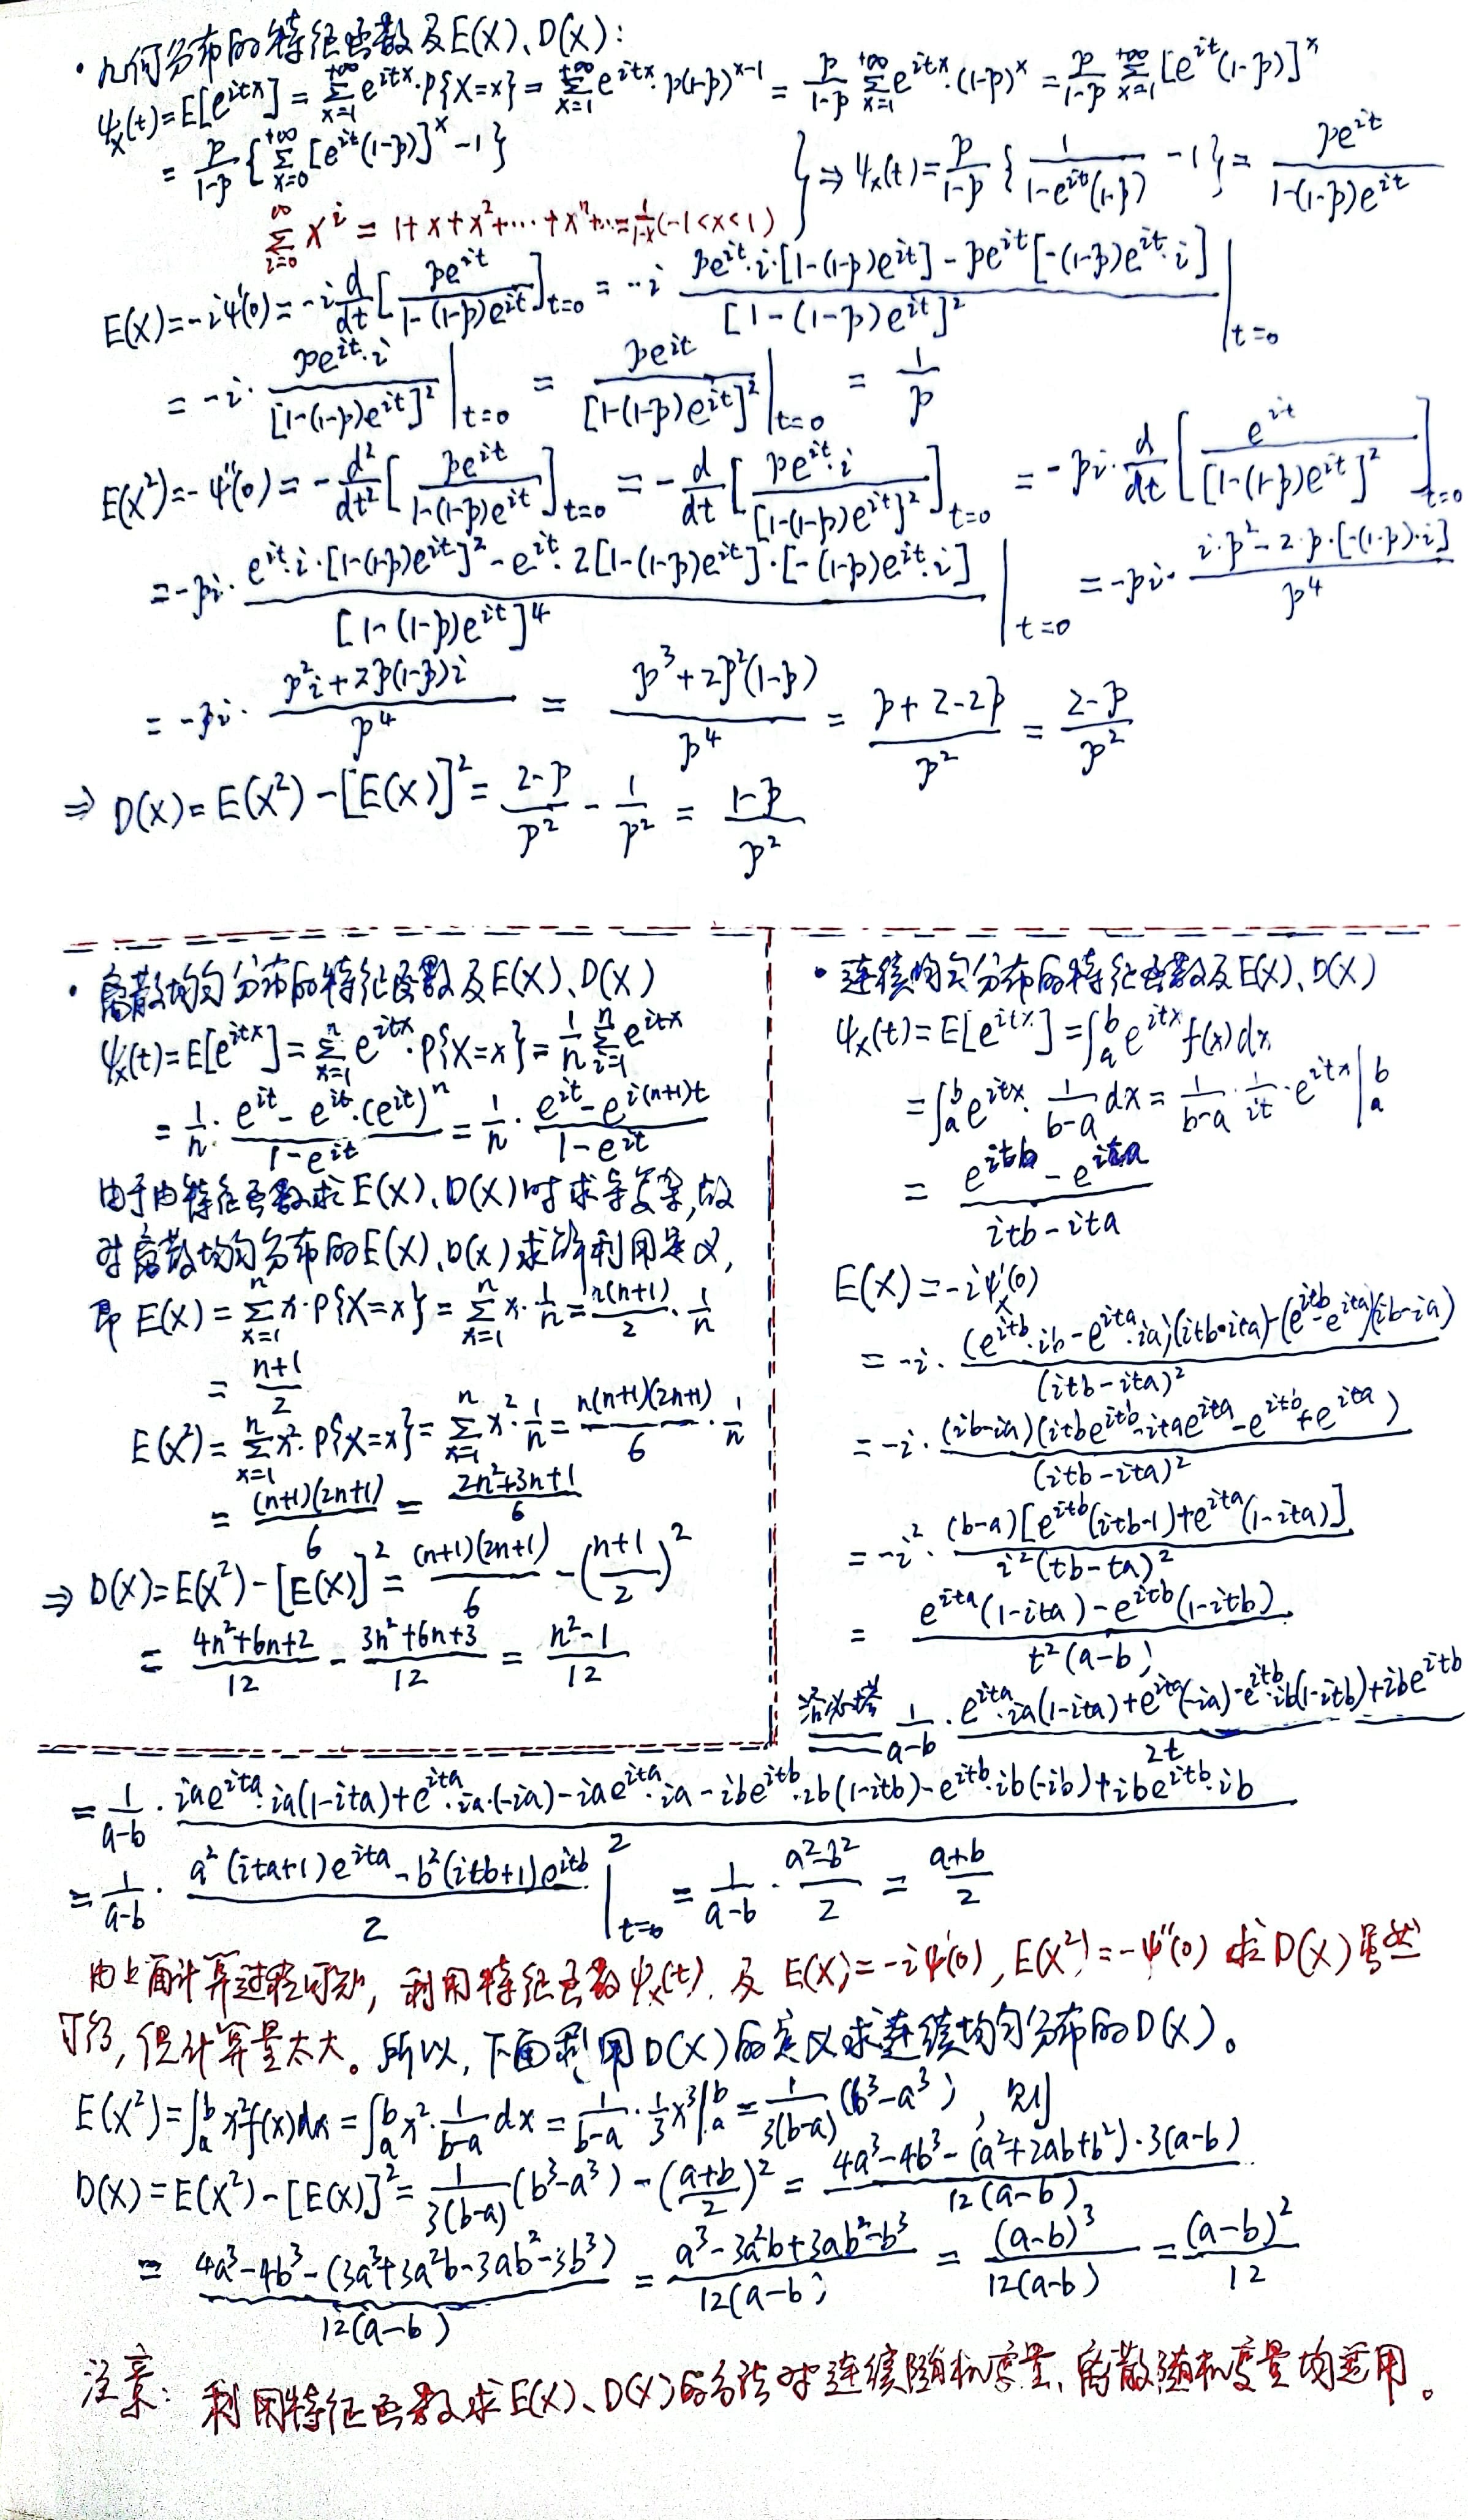 · 几何分布的特征函数及E(X)、D(X):
ψ_X(t)=E[e^{itX}]=∑_{x=1}^{+∞}e^{itx}·P{X=x}=∑_{x=1}^{+∞}e^{itx}·p(1-p)^{x-1}=\frac{p}{1-p}∑_{x=1}^{+∞}e^{itx}·(1-p)^x=\frac{p}{1-p}∑_{x=1}^{+∞}[e^{it}(1-p)]^x
=\frac{p}{1-p}{∑_{x=0}^{+∞}[e^{it}(1-p)]^x-1}
∑_{i=0}^{∞}x^i=1+x+x^2+···+x^n+···=\frac{1}{1-x}(-1<x<1)
}⇒ψ_X(t)=\frac{p}{1-p}{\frac{1}{1-e^{it}(1-p)}-1}=\frac{pe^{it}}{1-(1-p)e^{it}}
E(X)=-iψ'(0)=-i\frac{d}{dt}[\frac{pe^{it}}{1-(1-p)e^{it}}]_{t=0}=-i\frac{pe^{it}·i·[1-(1-p)e^{it}]-pe^{it}[-(1-p)e^{it}·i]}{[1-(1-p)e^{it}]^2}|_{t=0}
=-i·\frac{pe^{it}·i}{[1-(1-p)e^{it}]^2}|_{t=0}=\frac{pe^{it}}{[1-(1-p)e^{it}]^2}|_{t=0}=\frac{1}{p}
E(X^2)=-ψ''(0)=-\frac{d^2}{dt^2}[\frac{pe^{it}}{1-(1-p)e^{it}}]_{t=0}=-\frac{d}{dt}[\frac{pe^{it}·i}{[1-(1-p)e^{it}]^2}]_{t=0}=-pi·\frac{d}{dt}[\frac{e^{it}}{[1-(1-p)e^{it}]^2}]_{t=0}
=-pi·\frac{e^{it}·i·[1-(1-p)e^{it}]^2-e^{it}·2[1-(1-p)e^{it}]·[-(1-p)e^{it}·i]}{[1-(1-p)e^{it}]^4}|_{t=0}=-pi·\frac{i·p^2-2·p·[-(1-p)·i]}{p^4}
=-pi·\frac{p^2i+2p(1-p)i}{p^4}=\frac{p^3+2p^2(1-p)}{p^4}=\frac{p+2-2p}{p^2}=\frac{2-p}{p^2}
⇒D(X)=E(X^2)-[E(X)]^2=\frac{2-p}{p^2}-\frac{1}{p^2}=\frac{1-p}{p^2}
· 离散均匀分布的特征函数及E(X)、D(X)
ψ_X(t)=E[e^{itX}]=∑_{x=1}^{n}e^{itx}·P{X=x}=\frac{1}{n}∑_{i=1}^{n}e^{itx}
=\frac{1}{n}·\frac{e^{it}-e^{it}·(e^{it})^n}{1-e^{it}}=\frac{1}{n}·\frac{e^{it}-e^{i(n+1)t}}{1-e^{it}}
由于由特征函数求E(X)、D(X)时求导复杂,故
对离散均匀分布的E(X)、D(X)求解利用定义,
即E(X)=∑_{x=1}^{n}x·P{X=x}=∑_{x=1}^{n}x·\frac{1}{n}=\frac{n(n+1)}{2}·\frac{1}{n}
=\frac{n+1}{2}
E(X^2)=∑_{x=1}^{n}x^2·P{X=x}=∑_{x=1}^{n}x^2·\frac{1}{n}=\frac{n(n+1)(2n+1)}{6}·\frac{1}{n}
=\frac{(n+1)(2n+1)}{6}=\frac{2n^2+3n+1}{6}
⇒D(X)=E(X^2)-[E(X)]^2=\frac{(n+1)(2n+1)}{6}-(\frac{n+1}{2})^2
=\frac{4n^2+6n+2}{12}-\frac{3n^2+6n+3}{12}=\frac{n^2-1}{12}
· 连续均匀分布的特征函数及E(X)、D(X)
ψ_X(t)=E[e^{itX}]=∫_a^b e^{itx}f(x)dx
=∫_a^b e^{itx}·\frac{1}{b-a}dx=\frac{1}{b-a}·\frac{1}{it}·e^{itx}|_a^b
=\frac{e^{itb}-e^{ita}}{itb-ita}
E(X)=-iψ'_X(0)
=-i·\frac{(e^{itb}·ib-e^{ita}·ia)(itb-ita)-(e^{itb}-e^{ita})(ib-ia)}{(itb-ita)^2}
=-i·\frac{(ib-ia)(itbe^{itb}-itae^{ita}-e^{itb}+e^{ita})}{(itb-ita)^2}
=-i^2·\frac{(b-a)[e^{itb}(itb-1)+e^{ita}(1-ita)]}{i^2(tb-ta)^2}
=\frac{e^{ita}(1-ita)-e^{itb}(1-itb)}{t^2(a-b)}
洛必塔 = \frac{1}{a-b}·\frac{e^{ita}·ia(1-ita)+e^{ita}(-ia)-e^{itb}·ib(1-itb)+ibe^{itb}}{2t}
=\frac{1}{a-b}·\frac{iae^{ita}·ia(1-ita)+e^{ita}·ia·(-ia)-iae^{ita}·ia-ibe^{itb}·ib(1-itb)-e^{itb}·ib(-ib)+ibe^{itb}·ib}{2}
=\frac{1}{a-b}·\frac{a^2(ita+1)e^{ita}-b^2(itb+1)e^{itb}}{2}|_{t=0}=\frac{1}{a-b}·\frac{a^2-b^2}{2}=\frac{a+b}{2}
由上面计算过程可知,利用特征函数ψ_X(t).及E(X)=-iψ'(0),E(X^2)=-ψ''(0)求D(X)虽然
可行,但计算量太大。所以,下面利用D(X)的定义求连续均匀分布的D(X)。
E(X^2)=∫_a^b x^2f(x)dx=∫_a^b x^2·\frac{1}{b-a}dx=\frac{1}{b-a}·\frac{1}{3}x^3|_a^b=\frac{1}{3(b-a)}(b^3-a^3),则
D(X)=E(X^2)-[E(X)]^2=\frac{1}{3(b-a)}(b^3-a^3)-(\frac{a+b}{2})^2=\frac{4a^3-4b^3-(a^2+2ab+b^2)·3(a-b)}{12(a-b)}
=\frac{4a^3-4b^3-(3a^3+3a^2b-3ab^2-3b^3)}{12(a-b)}=\frac{a^3-3a^2b+3ab^2-b^3}{12(a-b)}=\frac{(a-b)^3}{12(a-b)}=\frac{(a-b)^2}{12}
注意:利用特征函数求E(X)、D(X)的方法对连续随机变量、离散随机变量均适用。